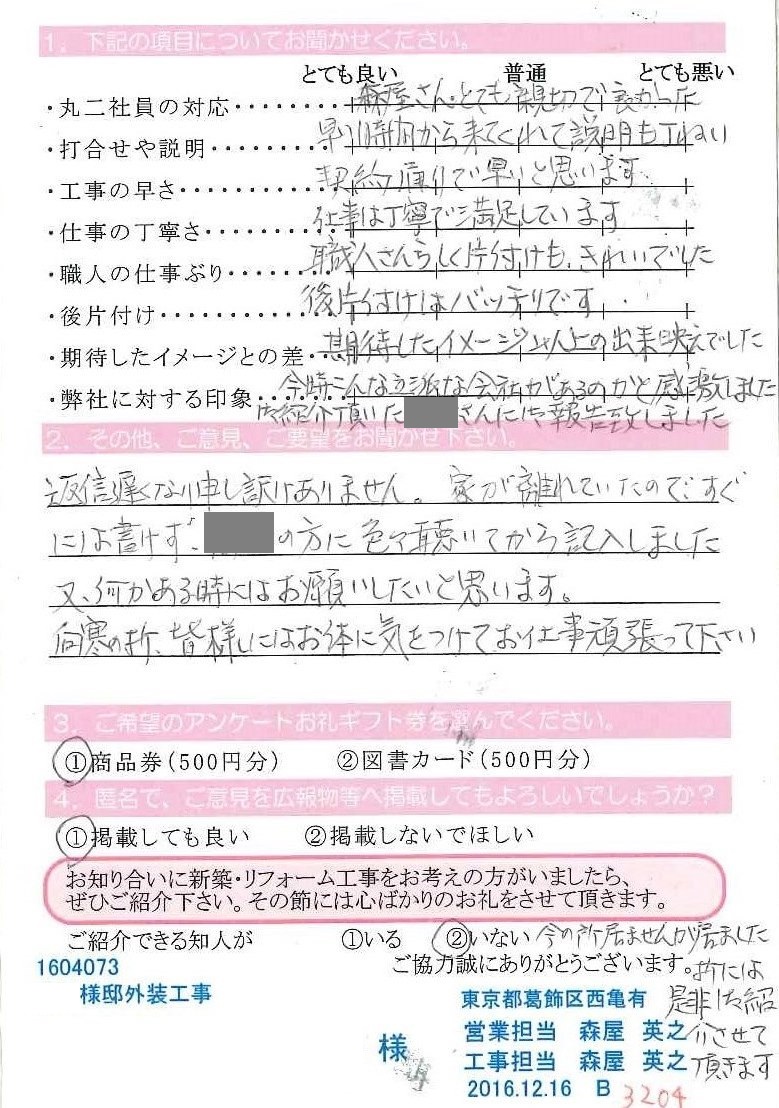 1. 下記の項目についてお聞かせください。
とても良い 普通 とても悪い
・丸二社員の対応・・・・・・・・ 森屋さん・とても親切で良かった
・打合せや説明・・・・・・・・・ 早い時間から来てくれて説明も丁ねい
・工事の早さ・・・・・・・・・・・ 契約通りで早いと思います
・仕事の丁寧さ・・・・・・・・・ 仕事は丁寧で満足しています
・職人の仕事ぶり・・・・・・・・ 職人さんらしく片付けも、きれいでした
・後片付け・・・・・・・・・・・・ 後片付けはバッチリです
・期待したイメージとの差・・ 期待したイメージ以上の出来映えでした
・弊社に対する印象・・・・・・ 今時こんな立派な会社があるのかと感激しました
御紹介頂いた さんに御報告致しました
2. その他、ご意見、ご要望をお聞かせ下さい。
返信遅くなり申し訳けありません。家が離れていたのですぐ
には書けず、 の方に色々聴いてから記入しました
又、何かある時にはお願いしたいと思います。
向寒の折、皆様にはお体に気をつけてお仕事頑張って下さい
3. ご希望のアンケートお礼ギフト券を選んでください。
①商品券(500円分) ②図書カード(500円分)
4. 匿名で、ご意見を広報物等へ掲載してもよろしいでしょうか?
①掲載しても良い ②掲載しないでほしい
お知り合いに新築・リフォーム工事をお考えの方がいましたら、
ぜひご紹介下さい。その節には心ばかりのお礼をさせて頂きます。
ご紹介できる知人が ①いる ②いない 今の所居ませんが居ました
ご協力誠にありがとうございます。 折には
1604073
様邸外装工事
東京都葛飾区西亀有 是非御紹
営業担当 森屋 英之 介させて
様
工事担当 森屋 英之 頂きます
2016.12.16 B 3204